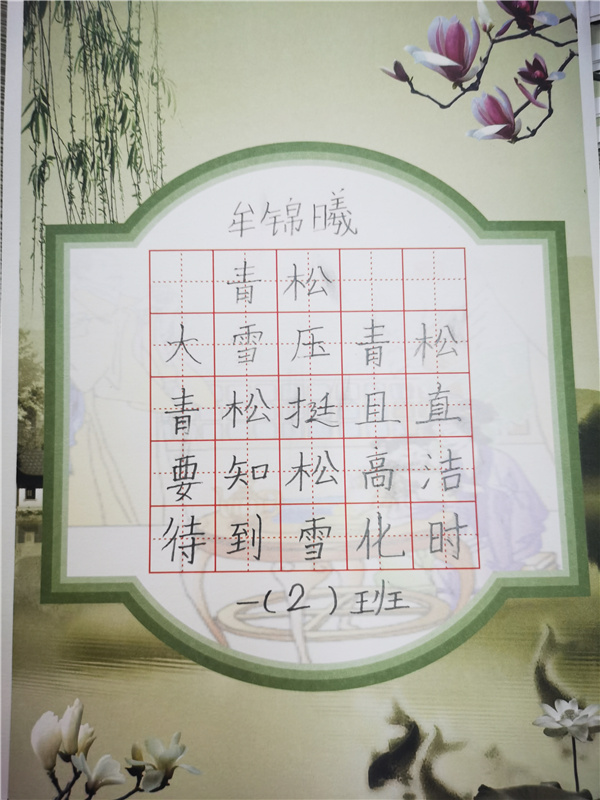 牟锦曦
青松
大雪压青松
青松挺且直
要知松高洁
待到雪化时
一(2)班